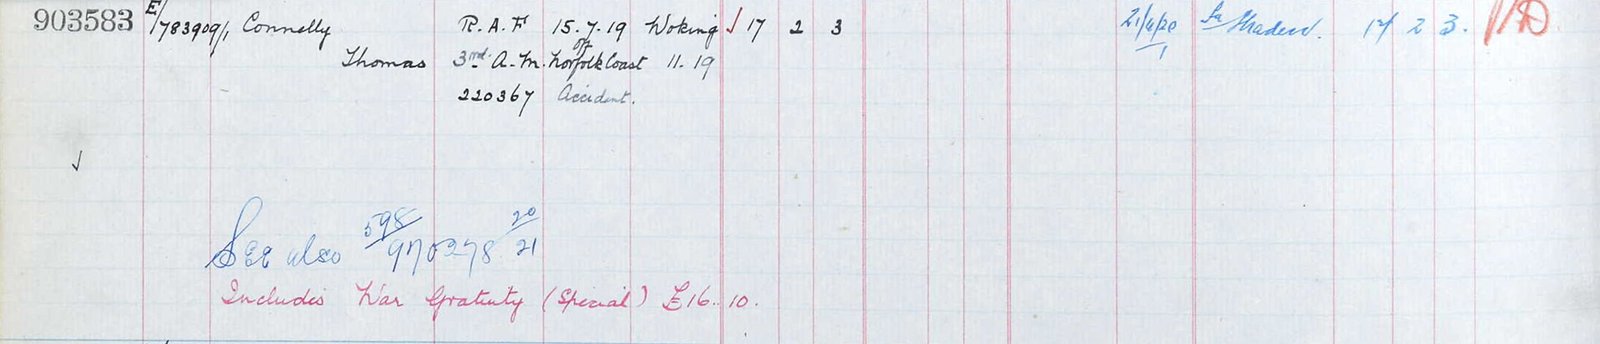 903583 E/783909/1 Connelly R.A.F 15.7.19 Woking 17 2 3 21/4/20 17 2 3.
Thomas 3rd A.M. off Norfolk Coast 11.19
220367 Accident.
See also 598/970278 20/21
Includes War Gratuity (Special) £16.10.